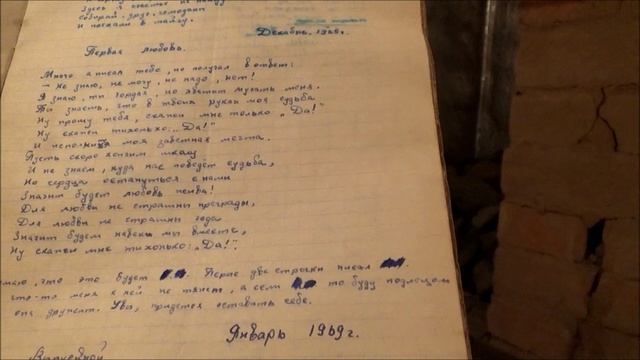 Здесь я счастье не найду
Собирай, друг, чемодан
И поехали в тайгу.
Декабрь, 1968 г.
Первая любовь.
Много я писал тебе, но получал в ответ:
– Не знаю, не могу, не надо, нет!
Я знаю, ты гордая, но хватит мучать меня.
Ты знаешь, что в твоих руках моя судьба
Ну прошу тебя, скажи мне только „Да!"
Ну скажи тихонько: „Да!"
И исполнится моя заветная мечта.
Пусть скоро кончим школу
И не знаем, куда нас поведёт судьба,
Но сердца останутся с нами
Значит будет любовь жива!
Для любви не страшны преграды,
Для любви не страшны года
Значит будем навеки мы вместе,
Ну скажи мне тихонько: „Да!".
что это будет Первые две строчки писал
что-то меня к ней не тянет, а если то буду подлецом
она дружит. Увы, придется оставить себе.
Январь 1969 г.